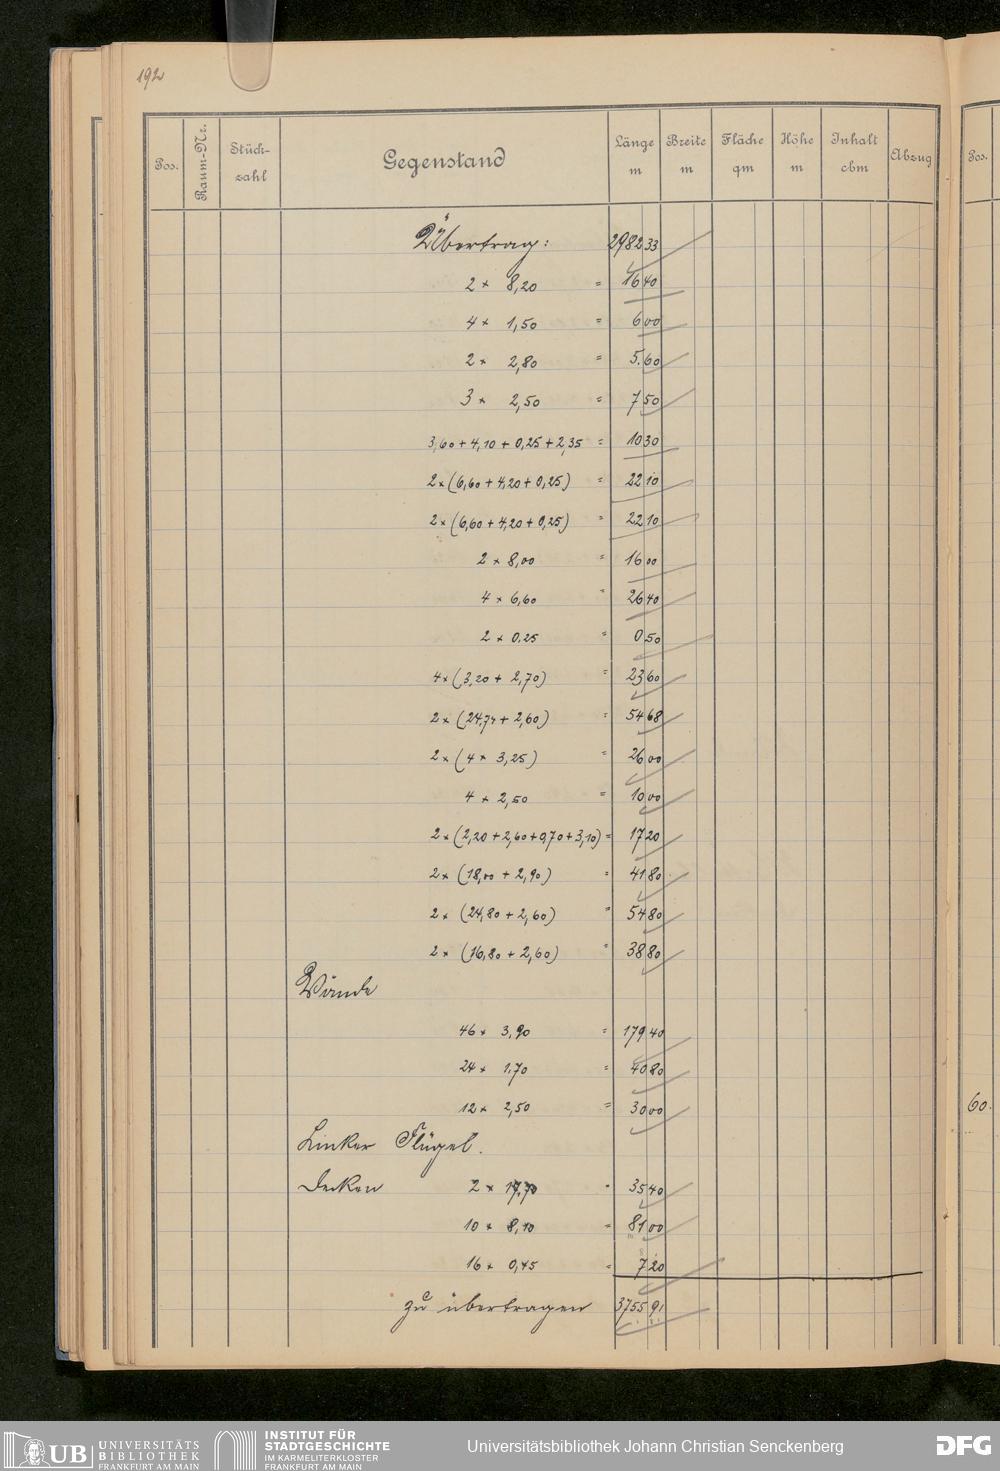 192
Pos. Raum-Nr. Stück-zahl Gegenstand Länge m Breite m Fläche qm Höhe m Inhalt cbm Abzug Pos.
Übertrag: 2982 33
2 × 8,20 = 16 40
4 × 1,50 = 6 00
2 × 2,80 = 5.60
3 × 2,50 = 7 50
3,60 + 4,10 + 0,25 + 2,35 = 10 30
2 × (6,60 + 4,20 + 0,25) = 22 10
2 × (6,60 + 4,20 + 0,25) = 22 10
2 × 8,00 = 16 00
4 × 6,60 = 26 40
2 × 0.25 = 0 50
4 × (3,20 + 2,70) = 23 60
2 × (24,74 + 2,60) = 54 68
2 × (4 × 3,25) = 26 00
4 × 2,50 = 10 00
2 × (2,20 + 2,60 + 0,70 + 3,10) = 17 20
2 × (18,00 + 2,90) = 41 80
2 × (24,80 + 2,60) = 54 80
2 × (16,80 + 2,60) = 38 80
Wände
46 × 3,90 = 179 40
24 × 1,70 = 40 80
12 × 2,50 = 30 00
60.
Linker Flügel.
Decken 2 × 17,70 = 35 40
10 × 8,10 = 81 00
16 × 0,45 = 7 20
zu übertragen 3755 91
UB UNIVERSITÄTS BIBLIOTHEK FRANKFURT AM MAIN
INSTITUT FÜR STADTGESCHICHTE IM KARMELITERKLOSTER FRANKFURT AM MAIN
Universitätsbibliothek Johann Christian Senckenberg
DFG